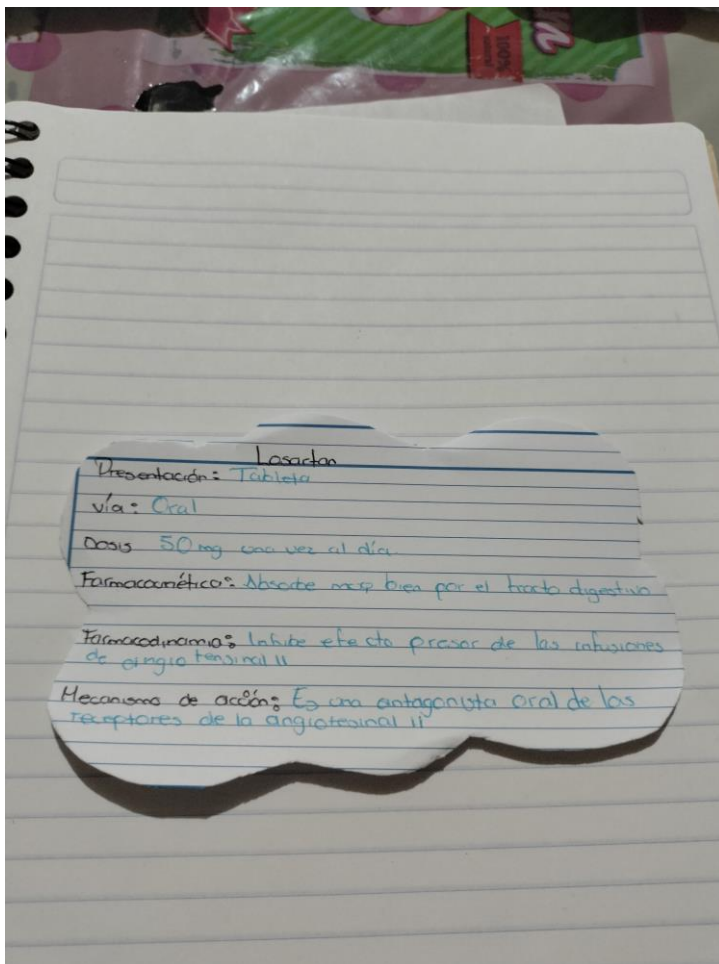 100%
Losartan
Presentación: Tableta
vía: Oral
Dosis 50 mg una vez al día
Farmacocinética: Absorbe muy bien por el tracto digestivo
Farmacodinamia: Inhibe efecto presor de las infusiones
de angiotensinal II
Mecanismo de acción: Es una antagonista oral de los
receptores de la angiotesinal II